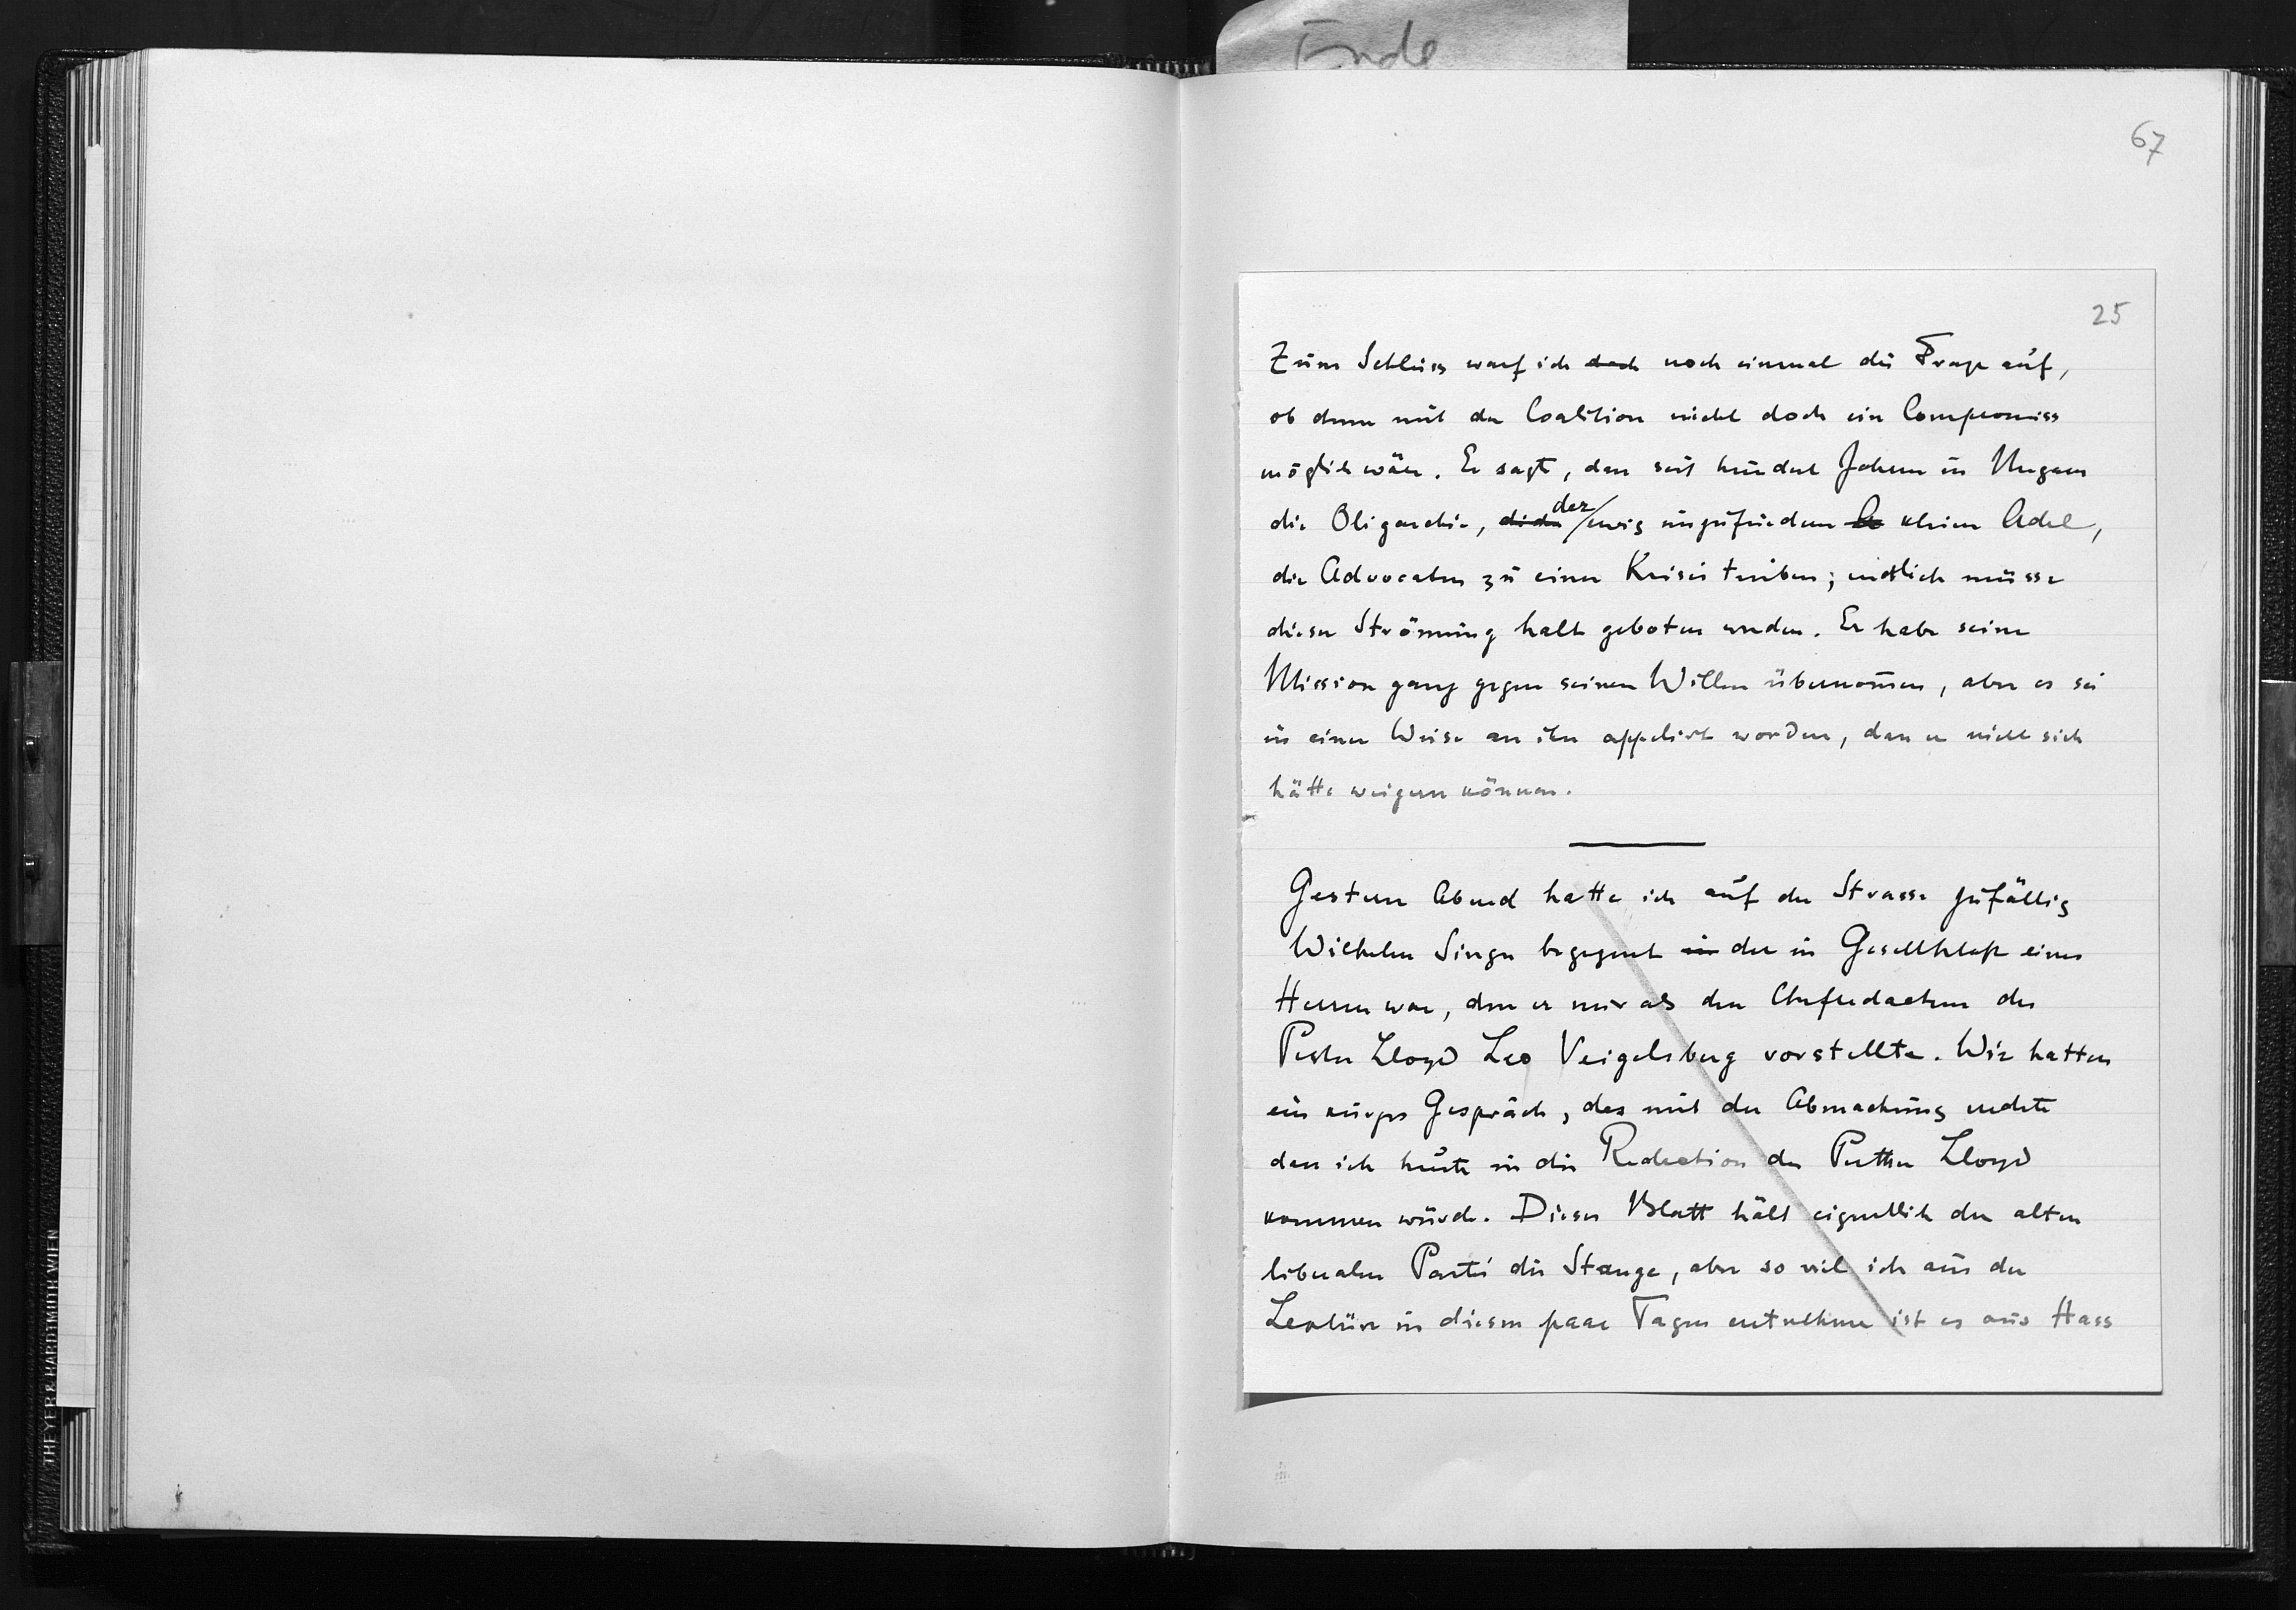 Ende
67
25
Zum Schluss warf ich doch noch einmal die Frage auf,
ob denn mit der Coalition nicht doch ein Compromiss
möglich wäre. Er sagte, dass seit hundert Jahren in Ungarn
die Oligarchie, der ewig unzufriedene kleine Adel,
die Advocaten zu einer Krisis treiben; endlich müsse
dieser Strömung halt geboten werden. Er habe seine
Mission ganz gegen seinen Willen übernom̄en, aber es sei
in einer Weise an ihn appelirt worden, dass er nicht sich
hätte weigern können.
Gestern Abend hatte ich auf der Strasse zufällig
Wilhelm Singer begegnet in der in Gesellschaft eines
Herren war, den er mir als den Chefredacteur des
Pester Lloyd Leo Veigelsberg vorstellte. Wir hatten
ein kurzes Gespräch, das mit der Abmachung endete
dass ich heute in die Redaction des Pester Lloyd
kommen würde. Dieses Blatt hält eigentlich der alten
liberalen Partei die Stange, aber so viel ich aus der
Lektüre in diesen paar Tagen entnehme ist es aus Hass
THEYER & HARDTMUTH, WIEN